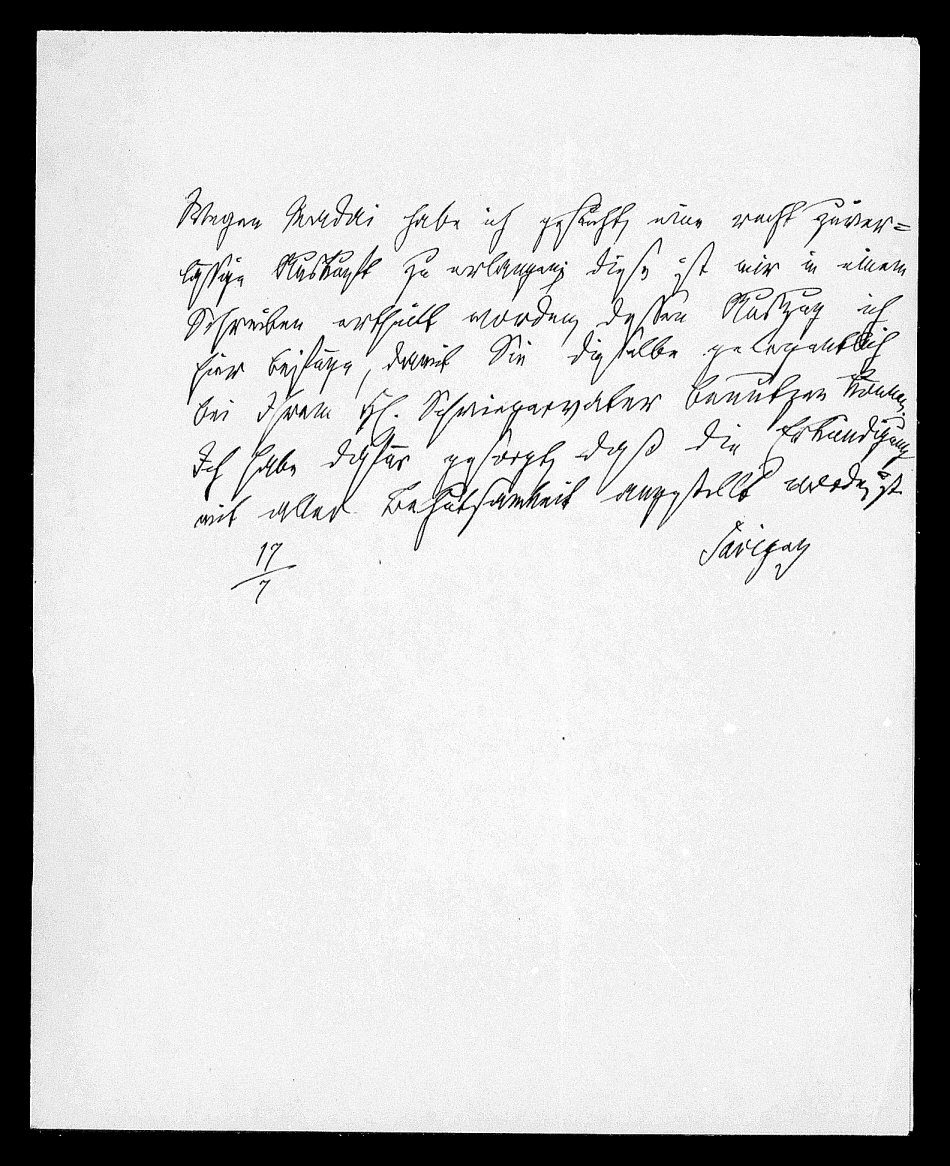 Wegen Madai habe ich gesucht, eine recht zuver=
lässige Auskunft zu erlangen; diese ist mir in einem
Schreiben ertheilt worden, dessen Auszug ich
hier beifüge, damit Sie dieselbe gelegentlich
bei Ihrem H. Schwiegervater benutzen können.
Ich habe dafür gesorgt, daß die Erkundigung
mit aller Behutsamkeit angestellt worden ist
Savigny
17
7